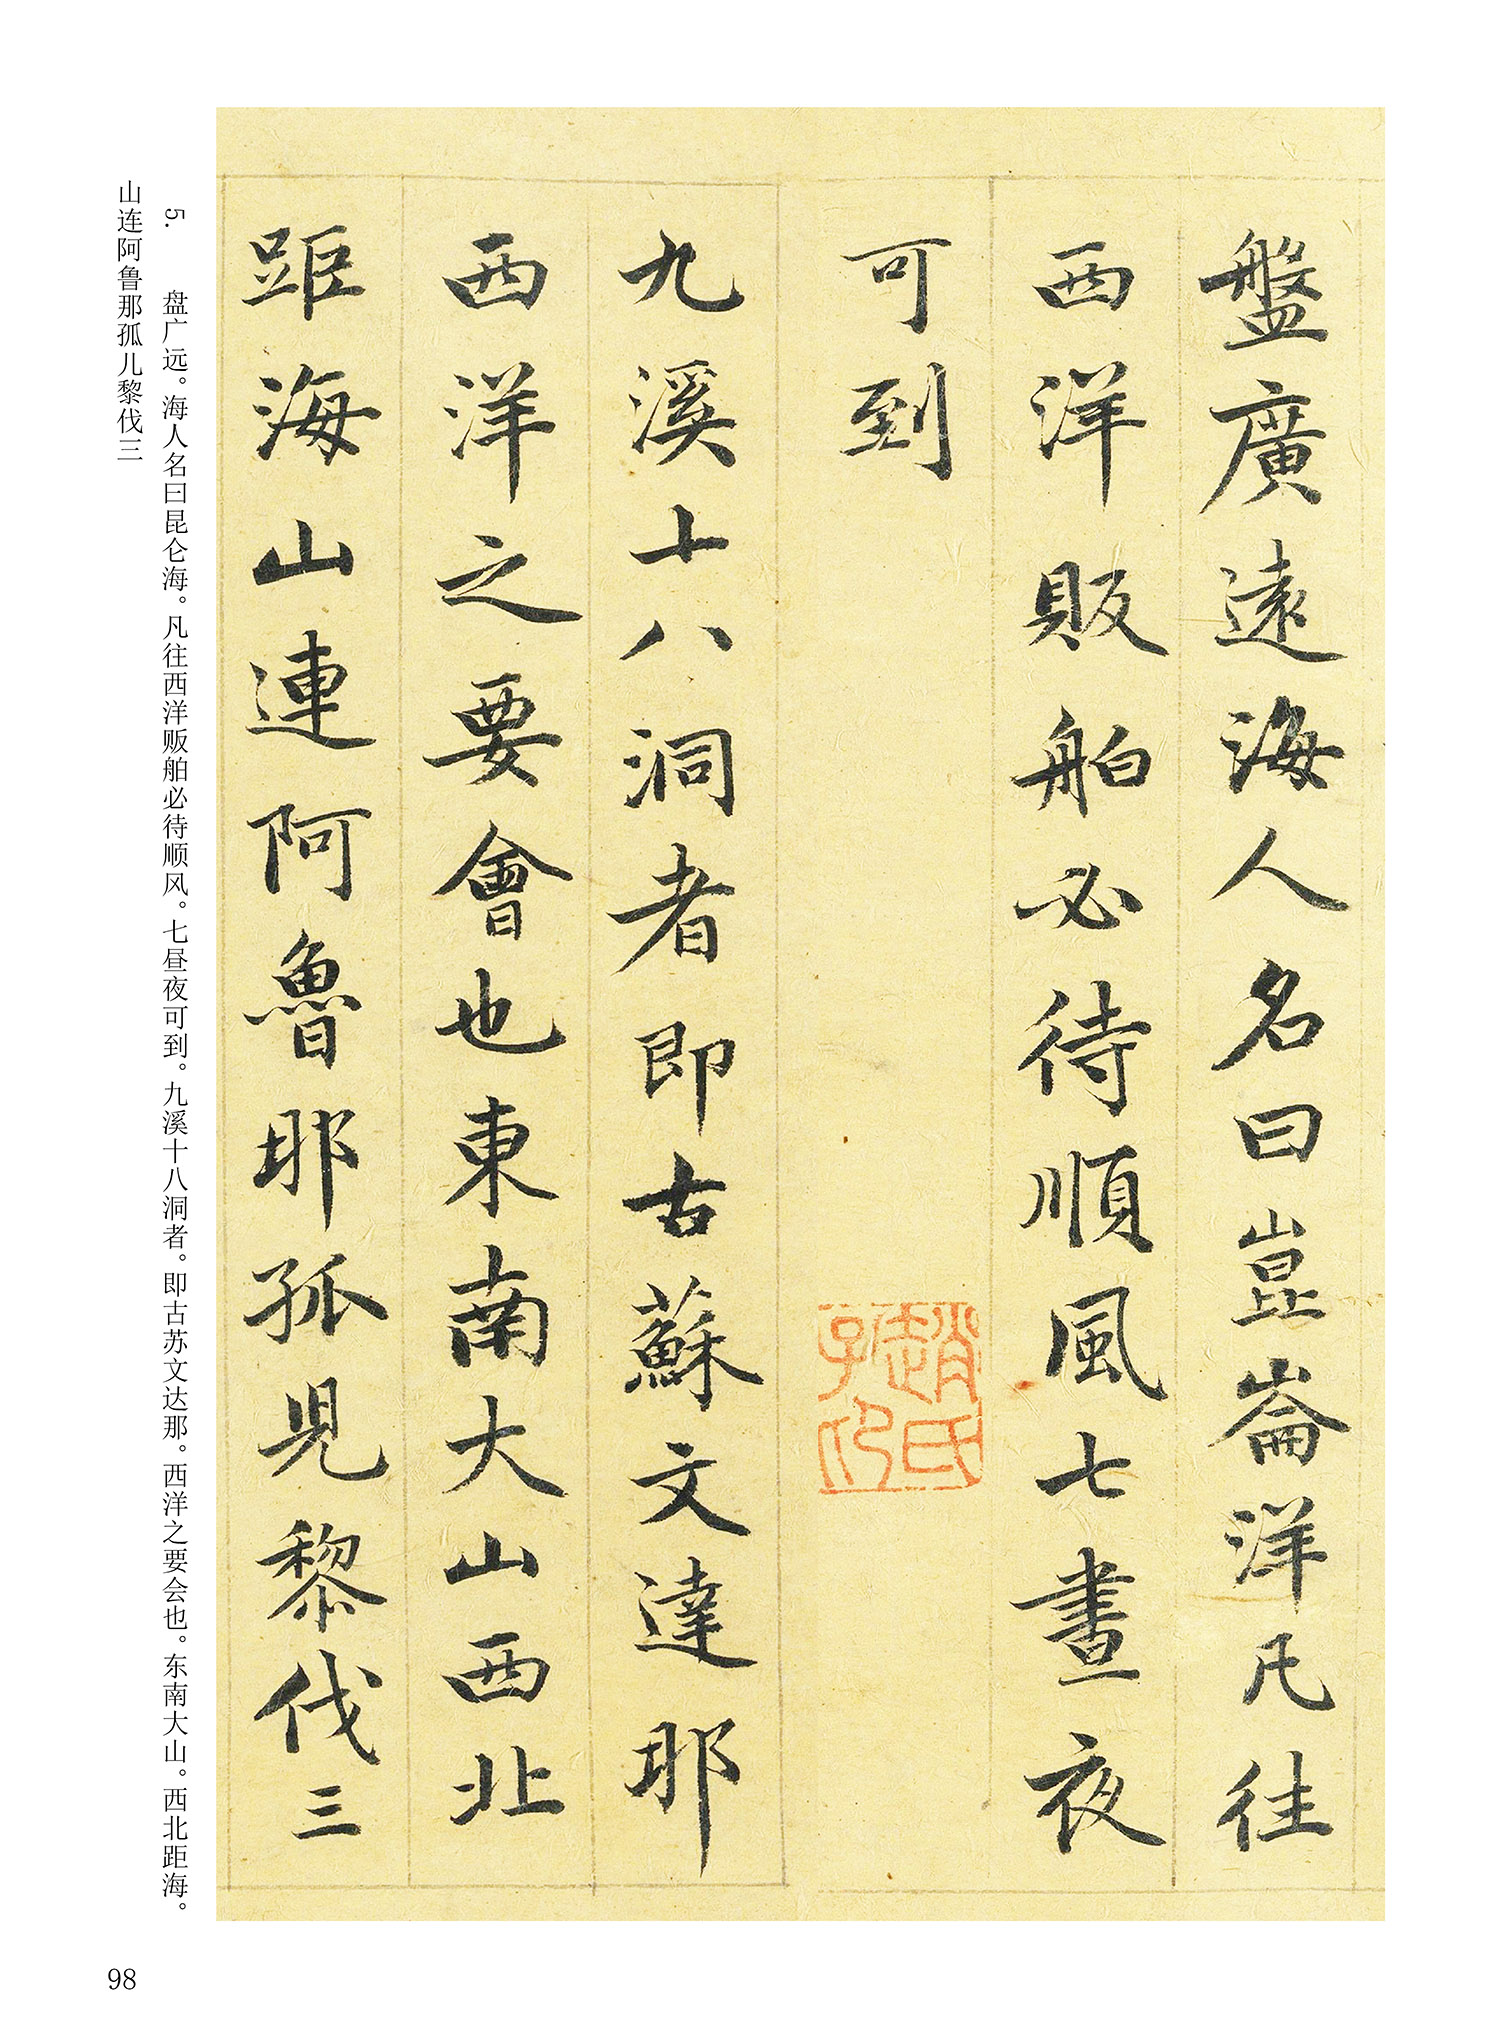 盤廣遠海人名曰崑崙洋凡往
西洋販舶必待順風七晝夜
可到
趙氏子昂
九溪十八洞者即古蘇文達那
西洋之要會也東南大山西北
距海山連阿魯那孤兒黎伐三
5. 盘广远。海人名曰昆仑海。凡往西洋贩舶必待顺风。七昼夜可到。九溪十八洞者。即古苏文达那。西洋之要会也。东南大山。西北距海。
山连阿鲁那孤儿黎伐三
98